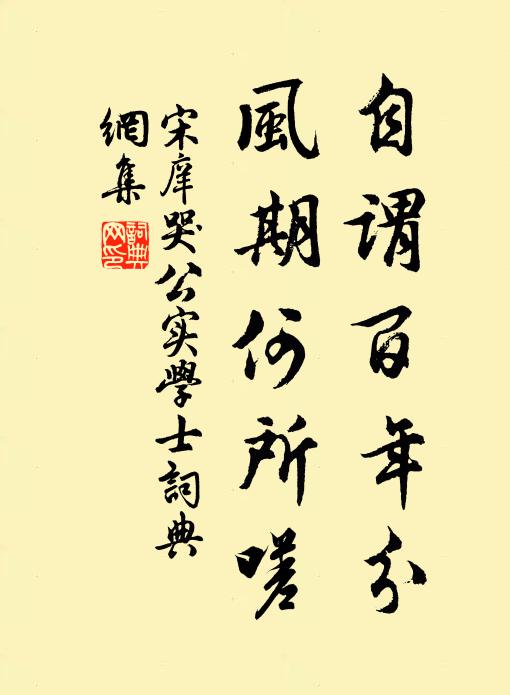 自謂百年分
風期何所嗟
宋庠哭公实學士詞典
網集
詞典
网印